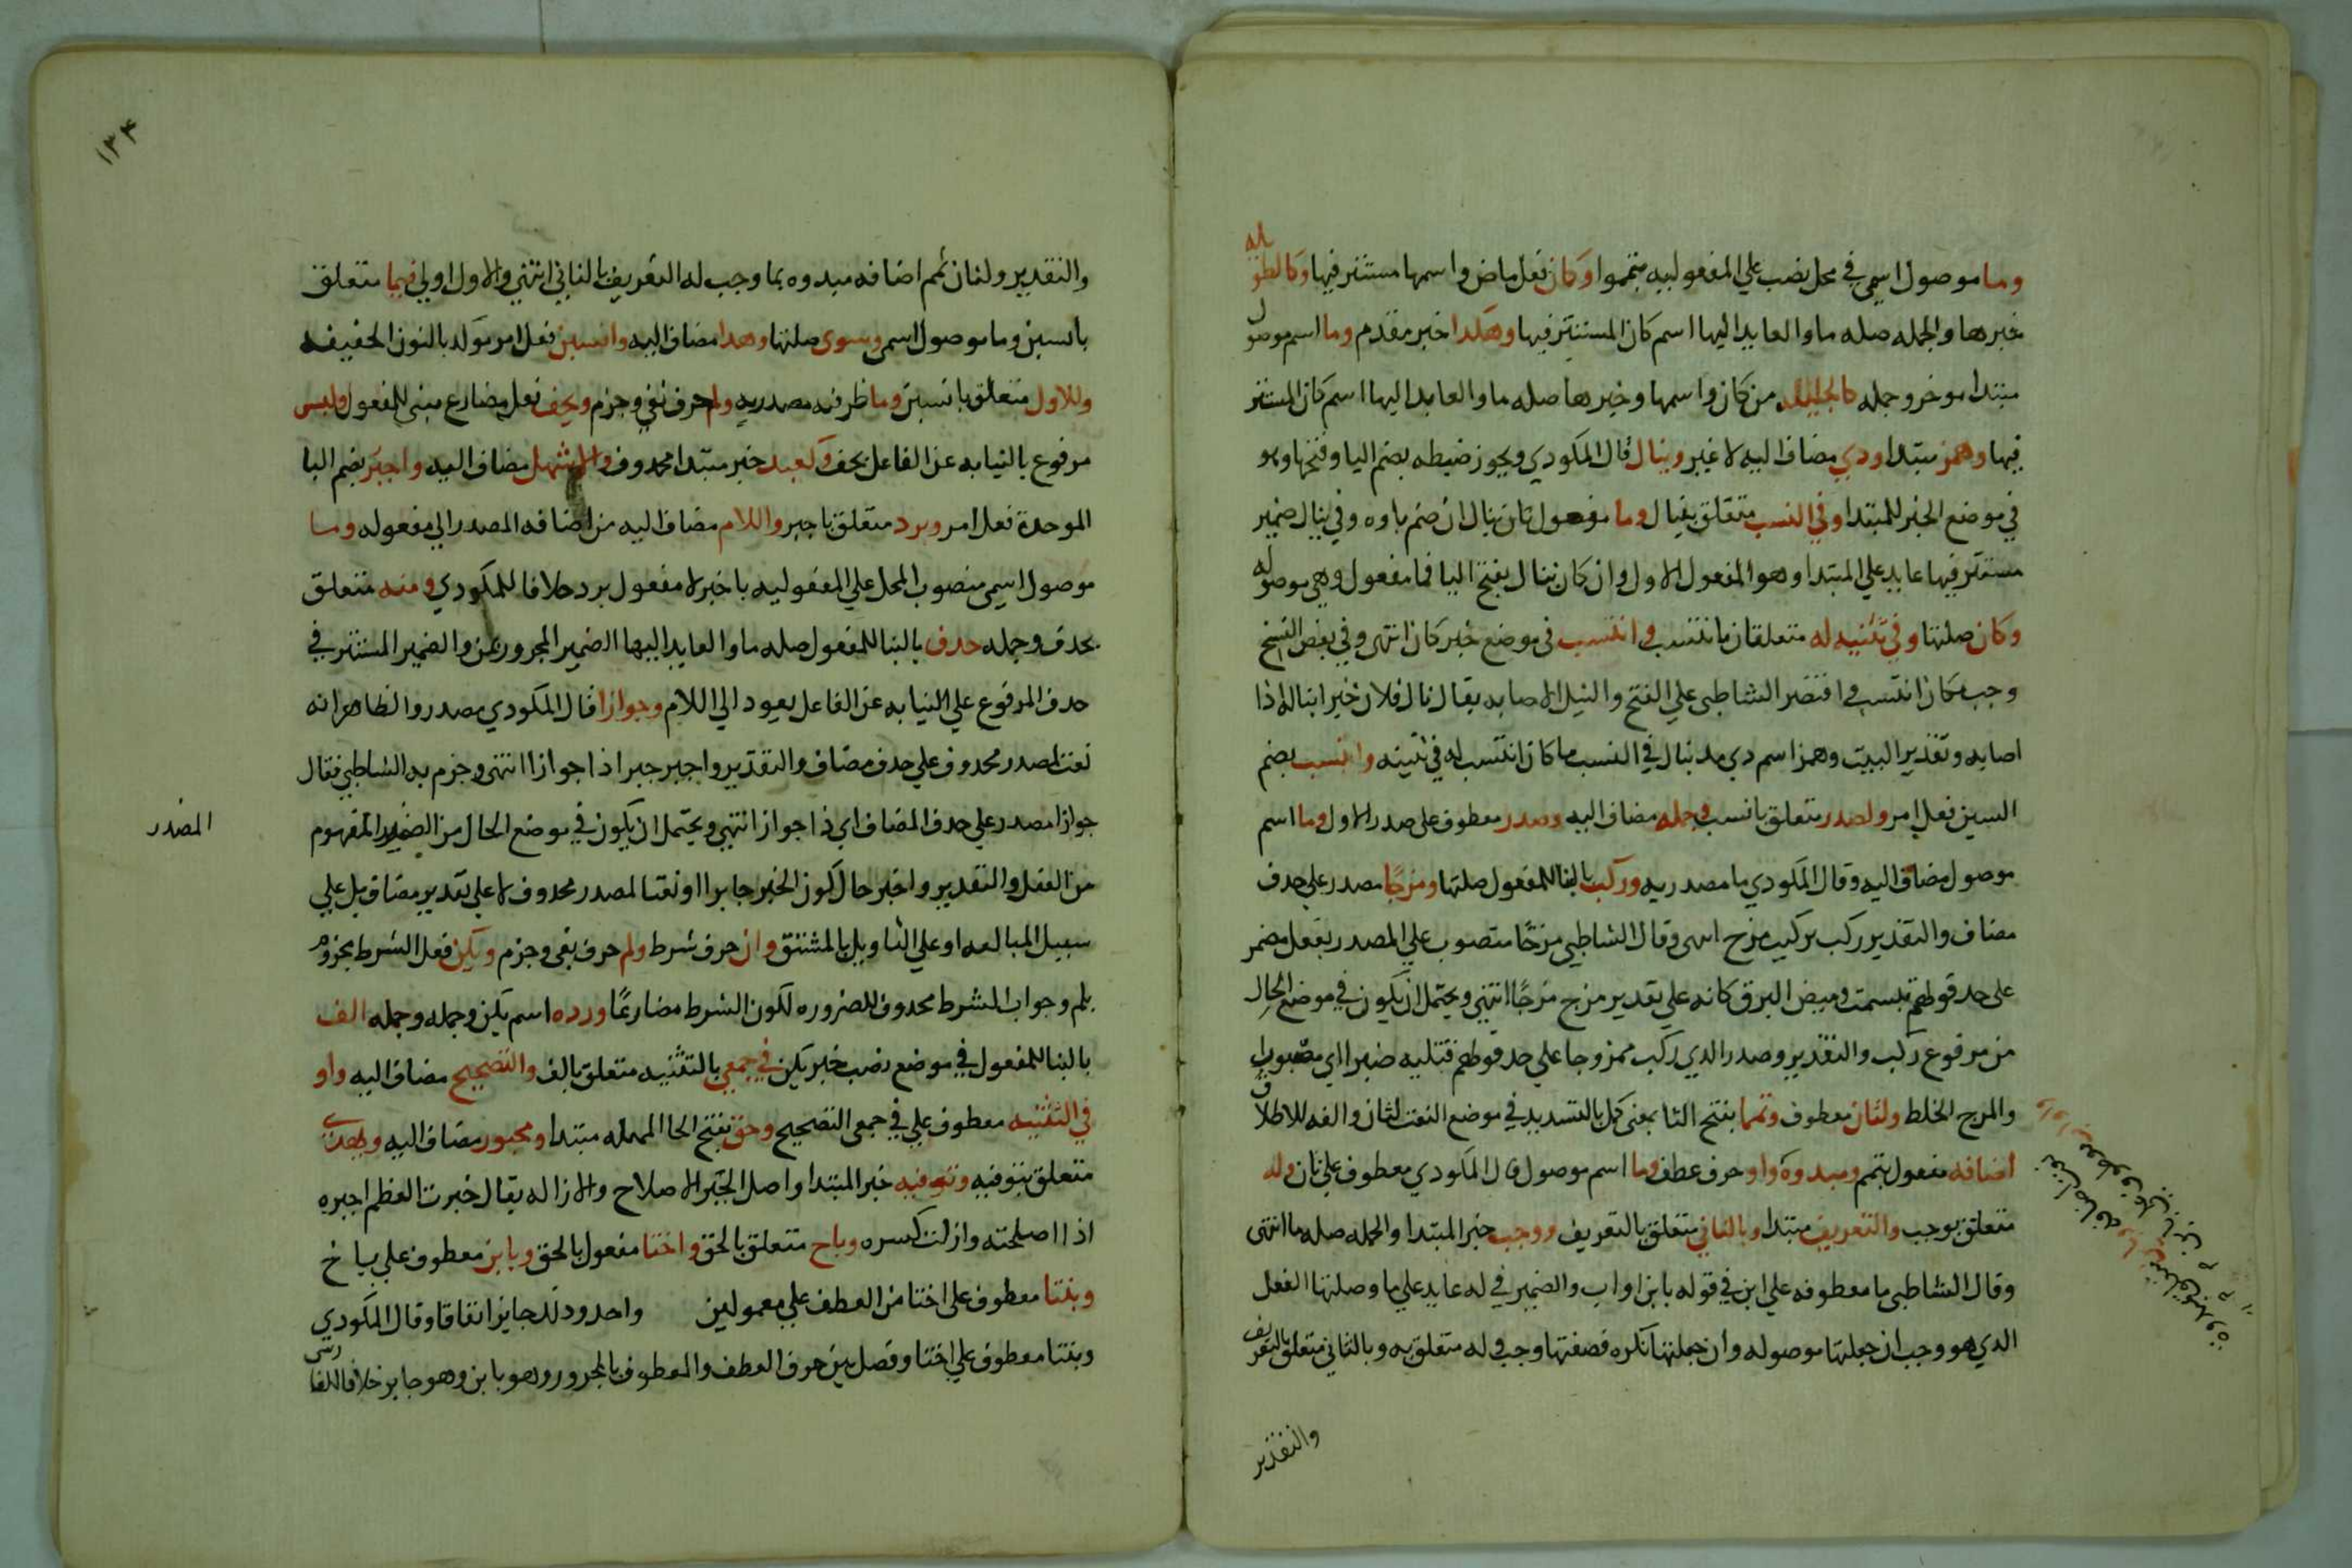 وما موصول اسمي في محل نصب علي المفعوليه بتمموا وكان فعل ماض واسمها مستتر فيها وكالطويله
خبرها والجمله صله ما والعايد اليها اسم كان المستتر فيها وهكذا خبر مقدم وما اسم موصول
مبتدا موخر وجمله كالجليله من كان واسمها وخبرها صله ما والعايد اليها اسم كان المستتر
فيها وهمز مبتدا ودي مضاف اليه لا غير وينال قال المكودي ويجوز ضبطه بضم اليا وفتحها وهو
في موضع الخبر للمبتدا وفي النسب متعلق بينال وما مفعول ثان بينال ان ضم ياوه وفي ينال ضمير
مستتر فيها عايد علي المبتدا وهو المفعول الاول وان كان ينال بفتح اليا فما مفعول وهي موصوله
وكان صلتها وفي تثنيه له متعلقان بانتسب وانتسب في موضع خبر كان انتهي وفي بعض النسخ
وجب مكان انتسب واقتصر الشاطبي علي الفتح والنيل الاصابه يقال نال فلان خيرا يناله اذا
اصابه وتقدير البيت وهمز اسم دي مد ينال في النسب ما كان انتسب له في تثنيه وانسب بضم
السين فعل امر ولصدر متعلق بانسب وجمله مضاف اليه وصدر معطوف على صدر الاول وما اسم
موصول مضاف اليه وقال المكودي ما مصدريه وركب بالبنا للمفعول صلتها ومزجًا مصدر علي حدف
مضاف والتقدير ركب تركيب مزج انتهى وقال الشاطبي مزجًا منصوب علي المصدر بفعل مضمر
على حد قولهم تبسمت وميض البرق كانه علي تقدير مزج مزجًا انتهي ويحتمل ان يكون في موضع الحال
من مرفوع ركب والتقدير وصدر الدي ركب ممزوجا علي حد قولهم قتلته صبرا اي مصبورا
والمزج الخلط ولثان معطوف وتمما بفتح التا بمعنى كمل بالتشديد في موضع النعت لثان والفه للاطلاق
اضافه مفعول بتمم ومبدوة واو حرف عطف وما اسم موصول قال المكودي معطوف علي ثان وله
متعلق بوجب والتعريف مبتدا وبالثاني متعلق بالتعريف ووجب خبر المبتدا والجمله صله ما انتهى
وقال الشاطبي ما معطوفه علي ابن في قوله بابن او اب والضمير في له عايد علي ما وصلتها الفعل
الدي هو وجب ان جعلتها موصوله وان جعلتها نكره فصفتها وجب وله متعلق به وبالثاني متعلق بالتعريف
والتقدير
١٣٤
والتقدير ولثان تمم اضافه مبدوه بما وجب له التعريف بالثاني انتهي والاول اولي فيما متعلق
بانسبن وما موصول اسمي وسوى صلتها وهدا مضاف اليه وانسبن فعل امر موكد بالنون الخفيفه
وللاول متعلق بانسبن وما ظرفيه مصدريه ولم حرف نفي وجزم ويخف فعل مضارع مبني للمفعول ولبس
مرفوع بالنيابه عن الفاعل بخف وكعبد خبر مبتدا محدوف والاشهل مضاف اليه واجبر بضم البا
الموحدة فعل امر وبرد متعلق باجبر واللام مضاف اليه من اضافه المصدر الي مفعوله وما
موصول اسمي منصوب المحل علي المفعوليه باجبر لا مفعول برد خلافا للمكودي ومنه متعلق
بحدف وجمله حدف بالبنا للمفعول صله ما والعايد اليها الضمير المجرور بمن والضمير المستتر في
حدف المرفوع علي النيابه عن الفاعل يعود الي اللام وجوازا قال المكودي مصدر والظاهر انه
نعت لمصدر محدوف علي حدف مضاف والتقدير واجبر جبرا ذا جواز انتهي وجزم به الشاطبي فقال
جوازا مصدر علي حدف المضاف اي ذا جواز انتهي ويحتمل ان يكون في موضع الحال من الضمير المفهوم
المصدر
من الفعل والتقدير واجبر حال كون الخبر جابرا او نعتا لمصدر محدوف لا علي تقدير مضاف بل علي
سبيل المبالغه او علي التاويل بالمشتق وان حرف شرط ولم حرف نفي وجزم ويكن فعل الشرط مجزوم
بلم وجواب الشرط محدوف للضروره لكون الشرط مضارعًا ورده اسم يكن وجمله وجمله الف
بالبنا للمفعول في موضع نصب خبر يكن في جمعي بالتثنيه متعلق بالف والتصحيح مضاف اليه واو
في التثنيه معطوف علي في جمعي التصحيح وحق بفتح الحا المهمله مبتدا ومجبور مضاف اليه وبهدي
متعلق بتوفيه وتوفيه خبر المبتدا واصل الجبر الاصلاح والازاله يقال جبرت العظم اجبره
اذا اصلحته وازلت كسره وباخ متعلق بالحق واختا مفعول بالحق وبابن معطوف علي باخ
وبنتا معطوف علي اختا من العطف علي معمولين واحد ودلك جايز اتفاقا وقال المكودي
وبنتا معطوف علي اختا وفصل بين حرف العطف والمعطوف بالمجرور وهو بابن وهو جايز خلافا للفارسي